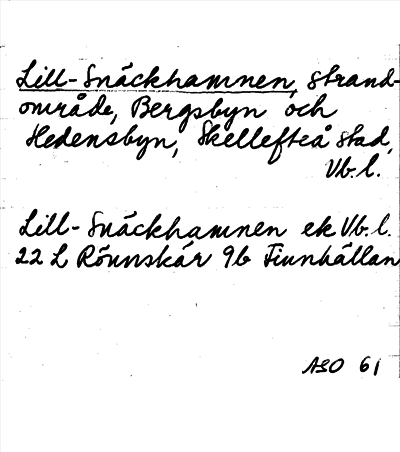 Lill-Snäckhamnen, strand-
område, Bergsbyn och
Hedensbyn, Skellefteå stad,
Vb.l.
Lill-Snäckhamnen ek Vb.l.
22 L Rönnskär 9b Finnhällan
ASO 61